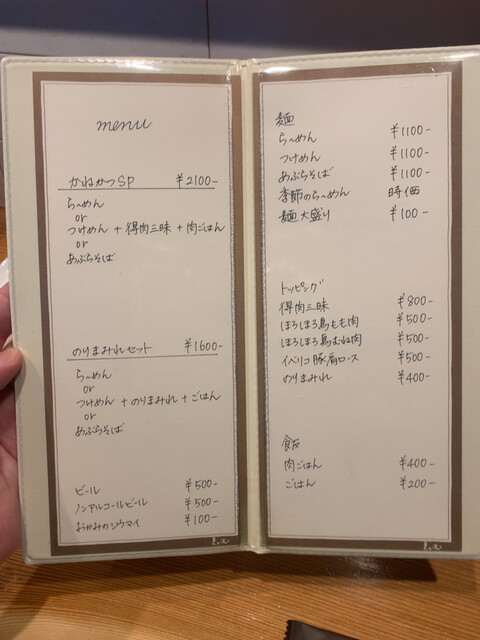 menu
かねかつSP ¥2100-
らーめん
or
つけめん + 得肉三昧 + 肉ごはん
or
あぶらそば
のりまみれセット ¥1600-
らーめん
or
つけめん + のりまみれ + ごはん
or
あぶらそば
ビール ¥500-
ノンアルコールビール ¥500-
おかみのシウマイ ¥100-
麺
らーめん ¥1100-
つけめん ¥1100-
あぶらそば ¥1100-
季節のらーめん 時価
麺大盛り ¥100-
トッピング
得肉三昧 ¥800-
ほろほろ鳥もも肉 ¥500-
ほろほろ鳥むね肉 ¥500-
イベリコ豚肩ロース ¥500-
のりまみれ ¥400-
飯
肉ごはん ¥400-
ごはん ¥200-